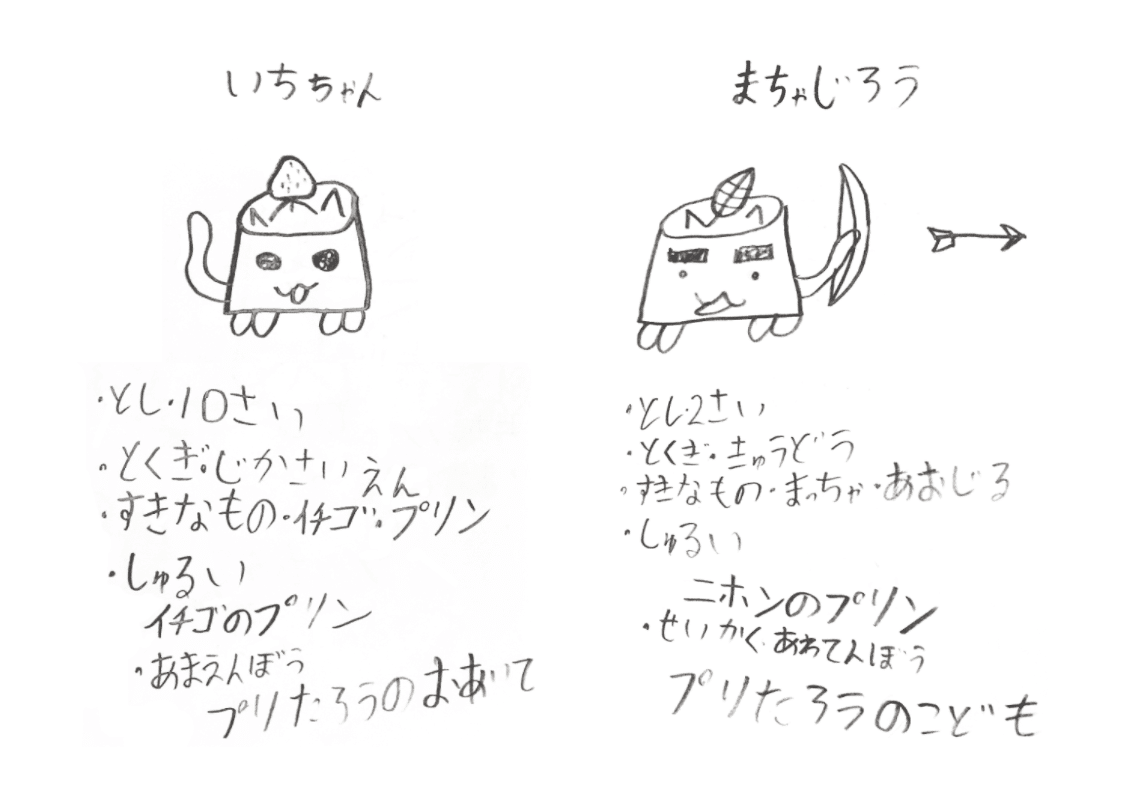 いちちゃん
・とし・10さい
・とくぎ・じかさいえん
・すきなもの・イチゴ・プリン
・しゅるい
イチゴのプリン
・あまえんぼう
プリたろうのおあいて
まちゃじろう
・とし・2さい
・とくぎ・きゅうどう
・すきなもの・まっちゃ・あおじる
・しゅるい
ニホンのプリン
・せいかく・あわてんぼう
プリたろうのこども